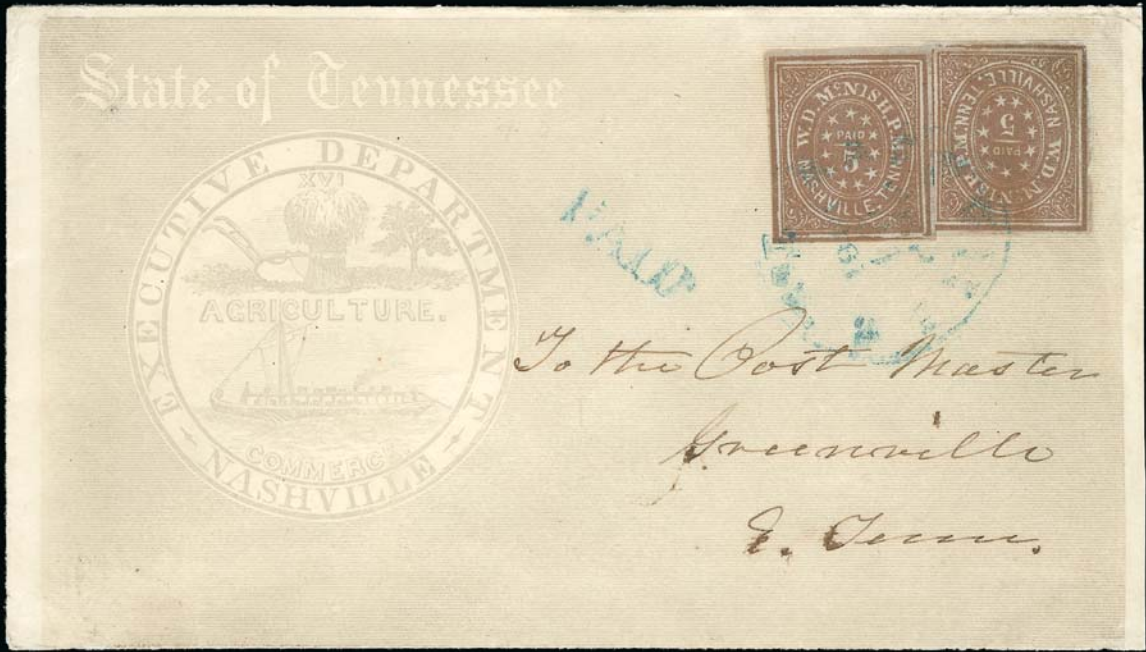 State of Tennessee
EXECUTIVE DEPARTMENT
XVI
AGRICULTURE.
COMMERCE.
NASHVILLE
W.D. McNISH. P.M.
PAID
5
NASHVILLE, TENN.
W.D. McNISH. P.M.
PAID
5
NASHVILLE, TENN.
PAID
To the Post Master
Greenville
E. Tenn.